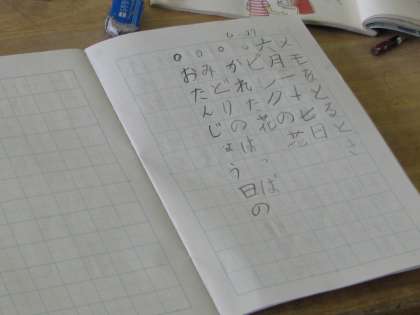 メモをとるとき
六月二十七日
○ピンクの花
○かれた花
○みどりのはっぱ
○おたんじょう日の